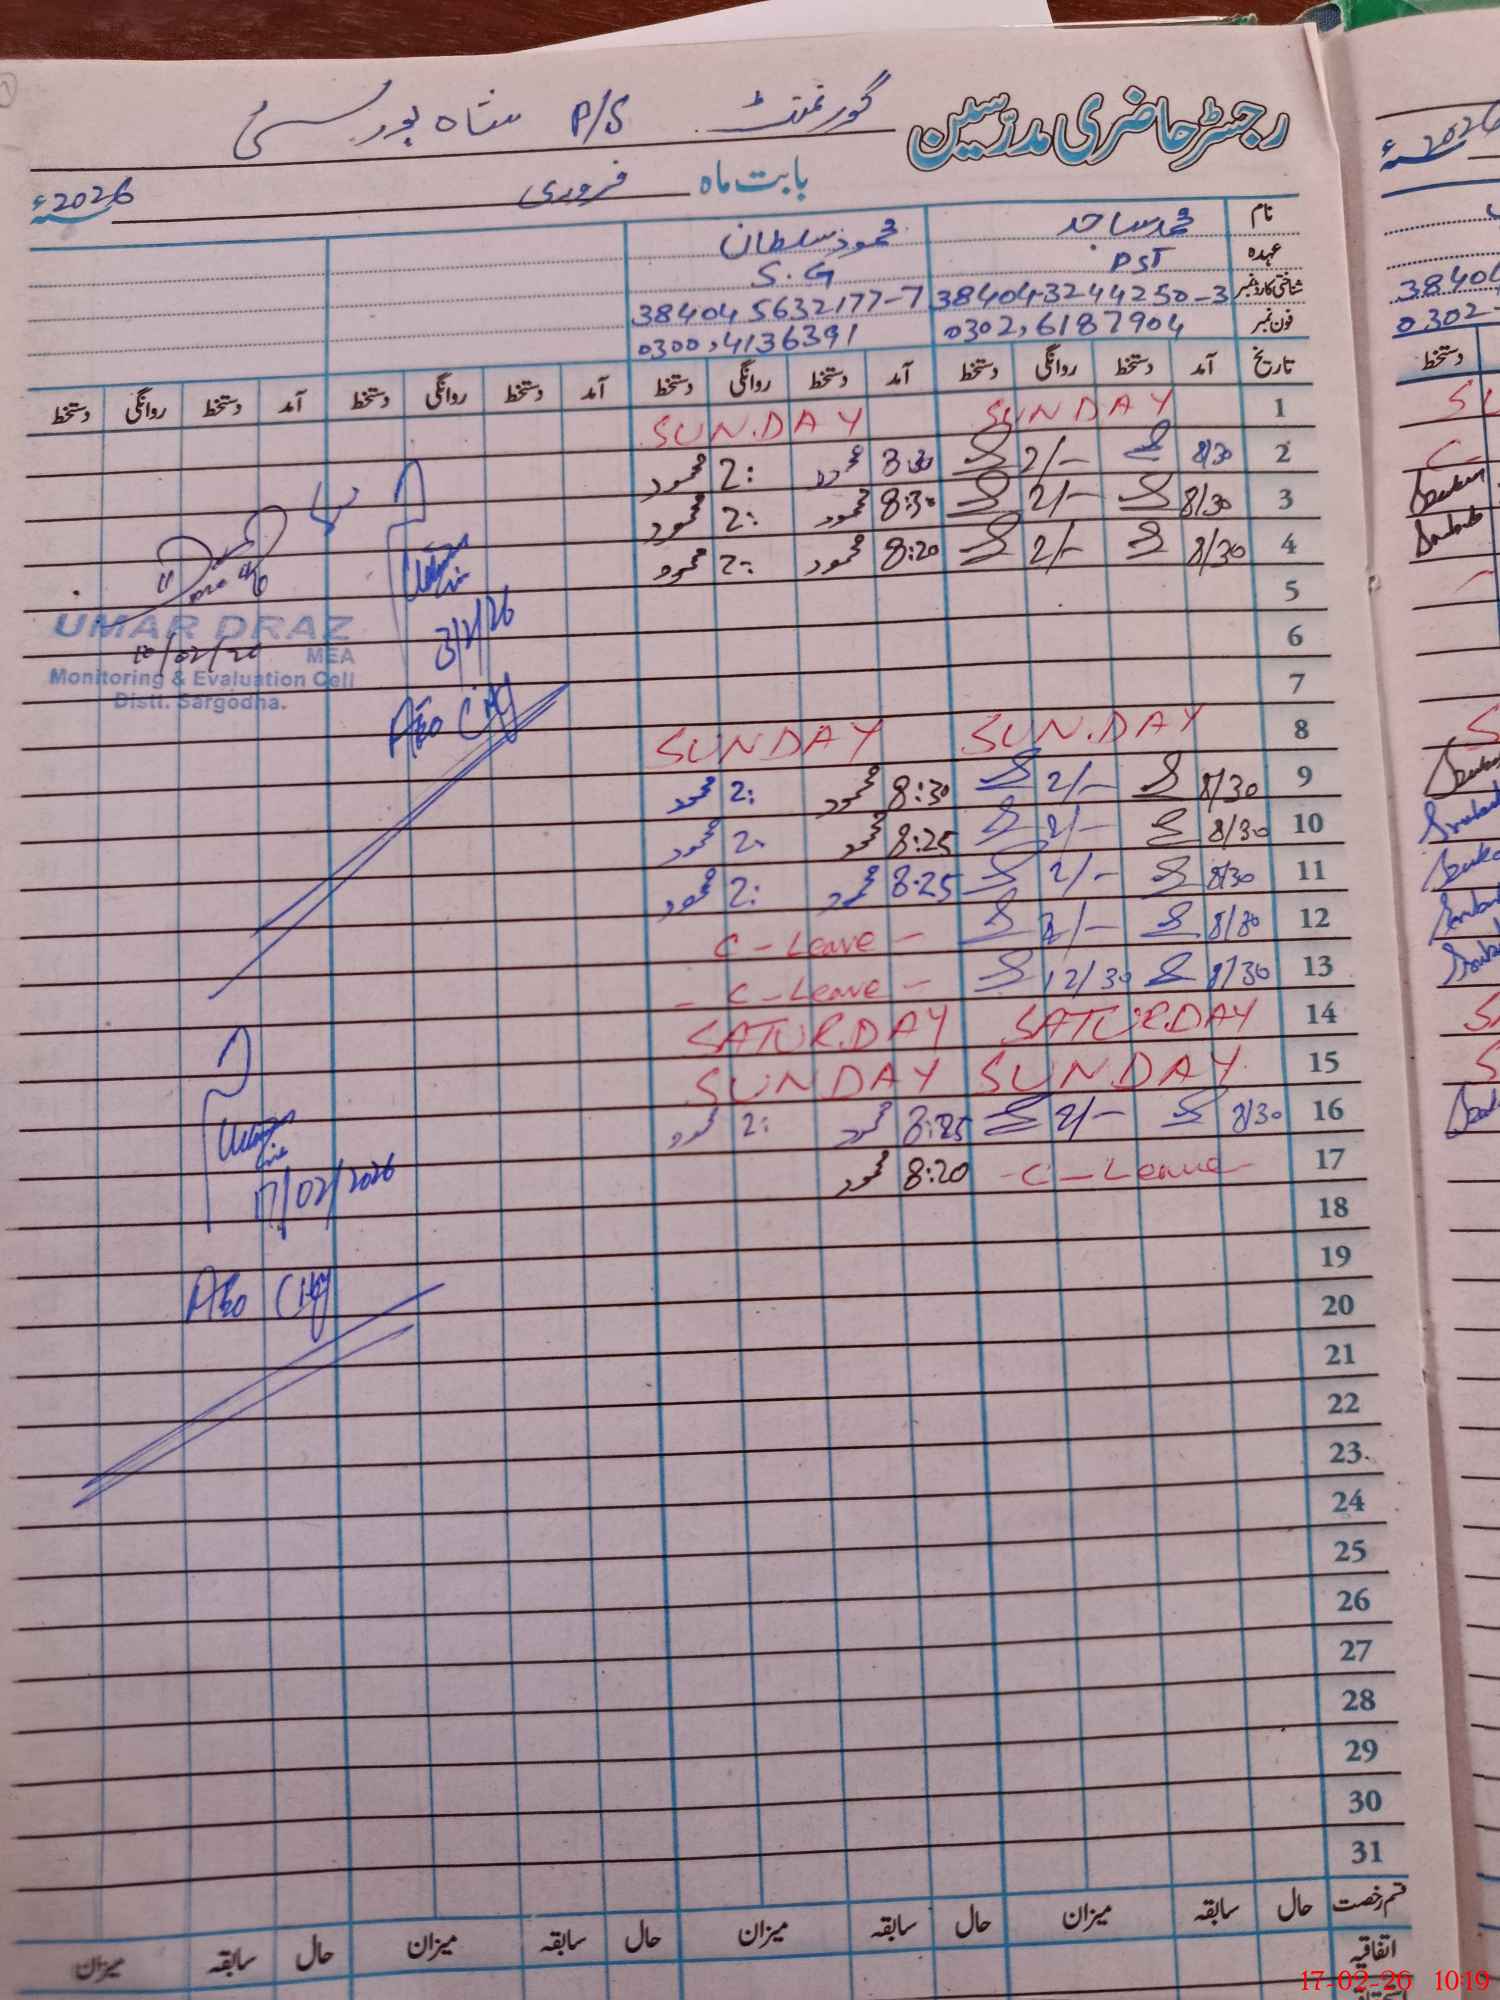 رجسٹر حاضری مدرسین گورنمنٹ P/S شاہ پور
بابت ماہ فروری 2026ء
نام محمد ساجد محمود سلطان
عہدہ PST S.G
شناختی کارڈ نمبر 38404-3244250-3 38404 5632177-7
فون نمبر 0302,6187904 0300,4136391
تاریخ آمد دستخط روانگی دستخط آمد دستخط روانگی دستخط آمد دستخط روانگی دستخط آمد دستخط روانگی دستخط
1 SUNDAY SUN.DAY
2 8/30 2/- 8:30 محمود 2: محمود
3 8/30 2/- 8:30 محمود 2: محمود
4 8/30 2/- 8:20 محمود 2: محمود
5
6
7
8 SUN.DAY SUNDAY
9 8/30 2/- 8:30 محمود 2: محمود
10 8/30 2/- 8:25 محمود 2: محمود
11 8/30 2/- 8:25 محمود 2: محمود
12 8/30 2/- C-Leave-
13 8/30 12/30 - C-Leave-
14 SATUR.DAY SATUR.DAY
15 SUN.DAY SUNDAY
16 8/30 2/- 8:25 محمود 2: محمود
17 -C-Leave- 8:20 محمود
18
19
20
21
22
23
24
25
26
27
28
29
30
31
قسم رخصت حال سابقہ میزان حال سابقہ میزان حال سابقہ میزان حال سابقہ میزان
اتفاقیہ
UMAR DRAZ
10/02/26 MEA
Monitoring & Evaluation Cell
Distt. Sargodha.
3/2/26
AEO City
17/02/2026
AEO City
2026ء
38404
0302-
دستخط
17-02-26 10:19